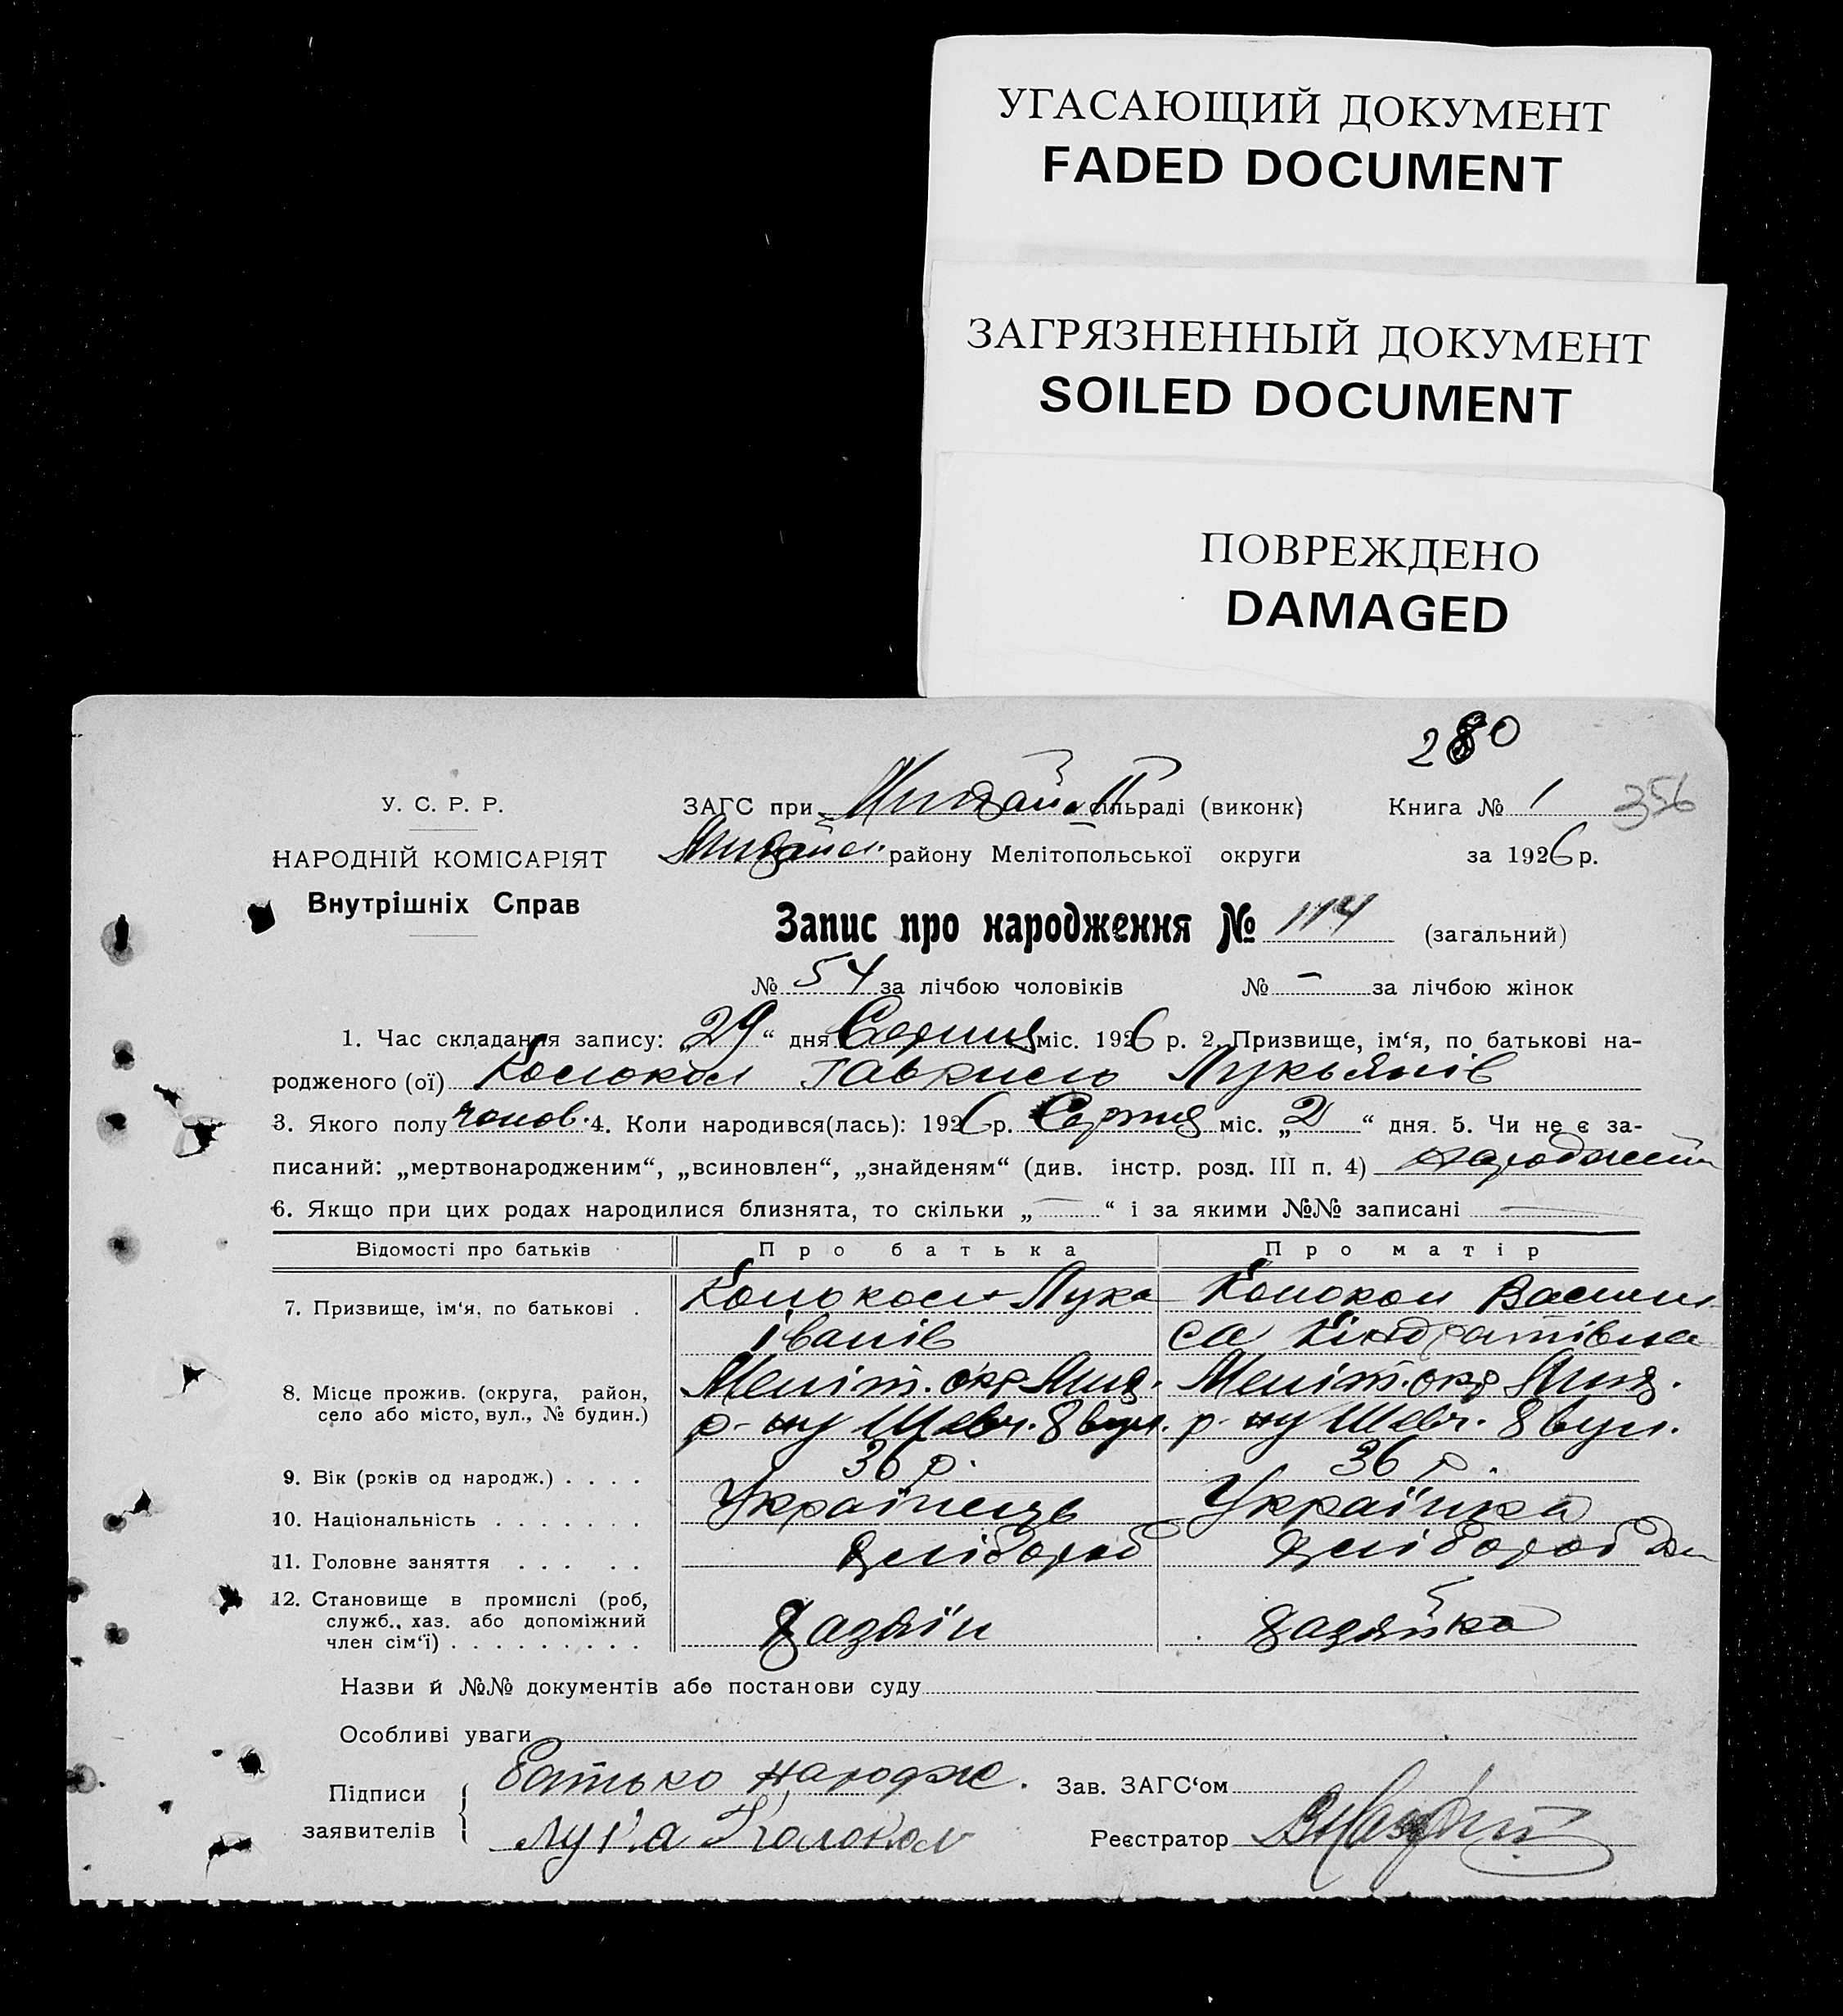 УГАСАЮЩИЙ ДОКУМЕНТ
FADED DOCUMENT
ЗАГРЯЗНЕННЫЙ ДОКУМЕНТ
SOILED DOCUMENT
ПОВРЕЖДЕНО
DAMAGED
280
356
У. С. Р. Р.
НАРОДНІЙ КОМІСАРІЯТ
Внутрішніх Справ
ЗАГС при сільраді (виконк) Книга № 1
району Мелітопольської округи за 1926 р.
Запис про народження № 114 (загальний)
№ 54 за лічбою чоловіків № — за лічбою жінок
1. Час складання запису: „29“ дня Серпня міс. 1926 р. 2. Призвище, ім‘я, по батькові на-
родженого (ої) Колокол Гаврило Лукьянів
3. Якого полу чолов. 4. Коли народився(лась): 1926 р. Серпня міс. „2“ дня. 5. Чи не є за-
писаний: „мертвонародженим“, „всиновлен“, „знайденям“ (див. інстр. розд. III п. 4)
6. Якщо при цих родах народилися близнята, то скільки „—“ і за якими №№ записані —
Відомості про батьків Про батька Про матір
7. Призвище, ім‘я, по батькові . Колокол Лука Іванів Колокол Васили-
са Кіндратівна
8. Місце прожив. (округа, район, село або місто, вул., № будин.) Меліт. окр. р-ну Шевч. 8 вул. Меліт. окр. р-ну Шевч. 8 вул.
9. Вік (років од народж.) . . . . 36 р. 36 р.
10. Національність . . . . . . . Українець Українка
11. Головне заняття . . . . . Хлібороб Хлібороб
12. Становище в промислі (роб, служб., хаз. або допоміжний член сім‘ї) . . . . . . . . . Хазяїн Хазяйка
Назви й №№ документів або постанови суду
Особливі уваги
Підписи заявителів Батько народж. Зав. ЗАГС‘ом
Лука Колокол Реєстратор